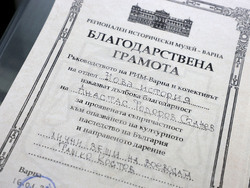 РЕГИОНАЛЕН ИСТОРИЧЕСКИ МУЗЕЙ - ВАРНА
БЛАГОДАРСТВЕНА
ГРАМОТА
Ръководството на РИМ-Варна и колективът
на отдел НОВА ИСТОРИЯ
изказват дълбока благодарност
на Анастас Тодоров
за проявената съпричастност
към опазването на културното
наследство на България
и направеното дарение
ЛИЧНИ ВЕЩИ НА ВОЕВОДАТА